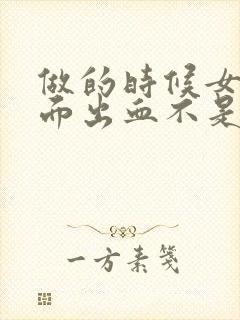 做的時候女
而出血不是
一方素箋